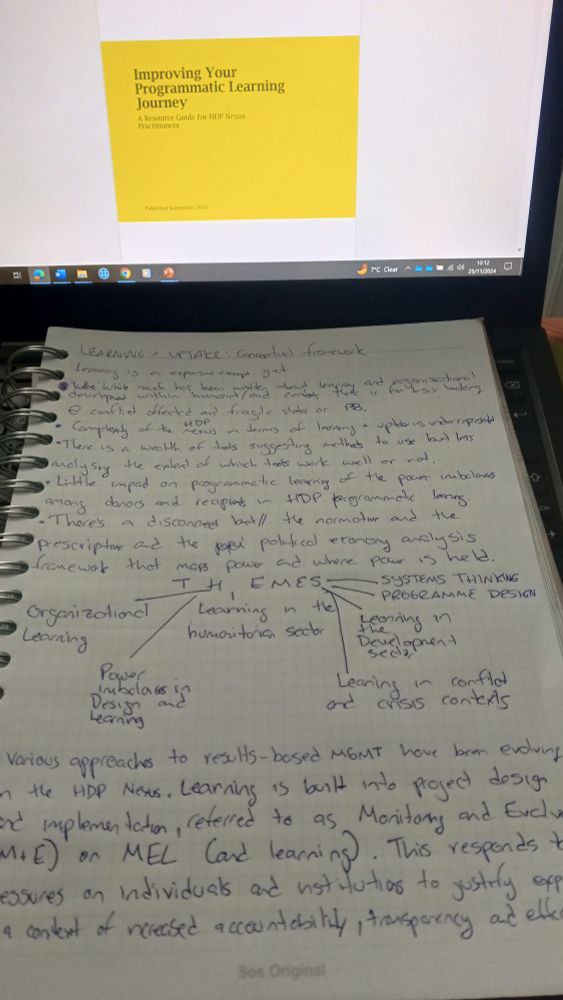 Improving Your
Programmatic Learning
Journey
A Resource Guide for HDP Nexus
Practitioners
Published September 2024
7°C Clear
10:12
25/11/2024
LEARNING + UPTAKE: Conceptual framework
Learning is a expansive concept yet
while much has been written about learning and organizational
developed within humanit/and contexts there is far less
@ conflict affected and fragile states or
• Complexity of the HDP nexus in terms of learning + uptake is
• There is a wealth of tools suggesting methods to use but less
analysing the extent of which tools work well or not.
• Little impad on programmatic learning of the power imbalances
among donors and recipients in HDP programmatic learning.
• There's a disconnect but// the normative and the
prescriptive and the political economy analysis
framework that maps power and where power is held.
THEMES
SYSTEMS THINKING
PROGRAMME DESIGN
Organizational
Learning
Learning in the
humanitarian sector
Learning in
the
Development
sector
Power
imbalances in
Design and
Learning
Learning in conflict
and crisis contexts
Various approaches to results-based MGMT have been evolving
n the HDP Nexus. Learning is built into project design
nd implementation, referred to as Monitoring and Evalu
M+E) on MEL (and learning). This responds t
essures on individuals and institutions to justify exp
a context of increased accountability, transparency and effec
Sos Original